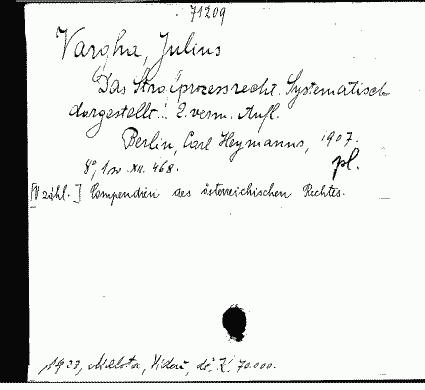 71209
Vargha, Julius
Das Strafprozessrecht. Systematisch
dargestellt. 2. verm. Aufl.
Berlin, Carl Heymanns, 1907.
8°, 1 w. XII. 468.
pl.
Compendien des österreichischen Rechtes.
1923, Malota, Wien, dö. K. 70.000.